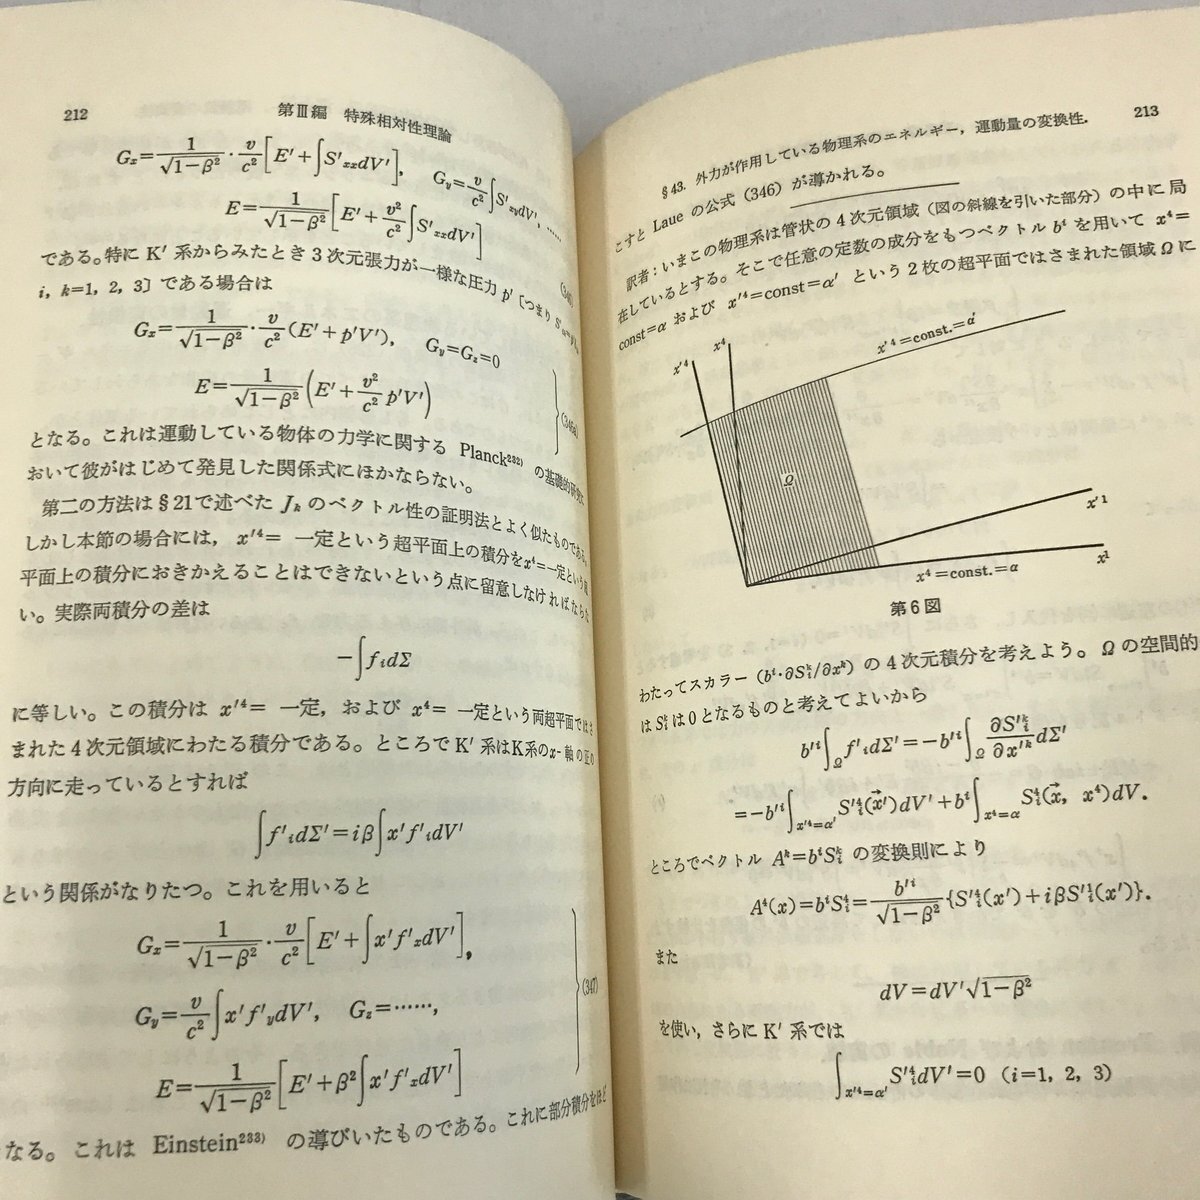 212
第Ⅲ編 特殊相対性理論
Gₓ=1/√(1−β²)·v/c²[E′+∫S′ₓₓdV′], G_y=v/c²∫S′ₓ_ydV′, ……
E=1/√(1−β²)[E′+v²/c²∫S′ₓₓdV′]
(346)
である。特に K′ 系からみたとき3次元張力が一様な圧力 p′〔つまり
i, k=1, 2, 3〕である場合は
Gₓ=1/√(1−β²)·v/c²(E′+p′V′), G_y=G_z=0
E=1/√(1−β²)(E′+v²/c² p′V′)
(346a)
となる。これは運動している物体の力学に関する Planck²³²⁾ の基礎的研究に
おいて彼がはじめて発見した関係式にほかならない。
第二の方法は§21で述べた Jₖ のベクトル性の証明法とよく似たものである。
しかし本節の場合には, x′⁴= 一定という超平面上の積分をx⁴=一定という超
平面上の積分におきかえることはできないという点に留意しなければならな
い。実際両積分の差は
−∫fᵢdΣ
に等しい。この積分は x′⁴= 一定, および x⁴= 一定という両超平面ではさ
まれた4次元領域にわたる積分である。ところで K′ 系はK系のx-軸の正の
方向に走っているとすれば
∫f′ᵢdΣ′=iβ∫x′f′ᵢdV′
という関係がなりたつ。これを用いると
Gₓ=1/√(1−β²)·v/c²[E′+∫x′f′ₓdV′],
G_y=v/c²∫x′f′_ydV′, G_z=……,
E=1/√(1−β²)[E′+β²∫x′f′ₓdV′]
(347)
なる。これは Einstein²³³⁾ の導びいたものである。これに部分積分をほど
§43. 外力が作用している物理系のエネルギー, 運動量の変換性.
213
こすと Laue の公式 (346) が導かれる。
訳者:いまこの物理系は管状の4次元領域(図の斜線を引いた部分)の中に局
在しているとする。そこで任意の定数の成分をもつベクトル bⁱ を用いて x⁴=
const=α および x′⁴=const=α′ という2枚の超平面ではさまれた領域 Ω に
x′⁴
x⁴
x′⁴=const.=α′
Ω
x′¹
x¹
x⁴=const.=α
第6図
わたってスカラー (bⁱ·∂Sᵢᵏ/∂xᵏ) の4次元積分を考えよう。Ω の空間的
は Sᵢᵏ は0となるものと考えてよいから
b′ⁱ∫_Ω f′ᵢdΣ′=−b′ⁱ∫_Ω ∂S′ᵢᵏ/∂x′ᵏ dΣ′
=−b′ⁱ∫_{x′⁴=α′} S′ᵢ⁴(x⃗′)dV′+bⁱ∫_{x⁴=α} Sᵢ⁴(x⃗, x⁴)dV.
ところでベクトル Aᵏ=bⁱSᵢᵏ の変換則により
A⁴(x)=bⁱSᵢ⁴=b′ⁱ/√(1−β²){S′ᵢ⁴(x′)+iβS′ᵢ¹(x′)}.
また
dV=dV′√(1−β²)
を使い, さらに K′ 系では
∫_{x′⁴=α′} S′ᵢ⁴dV′=0 (i=1, 2, 3)